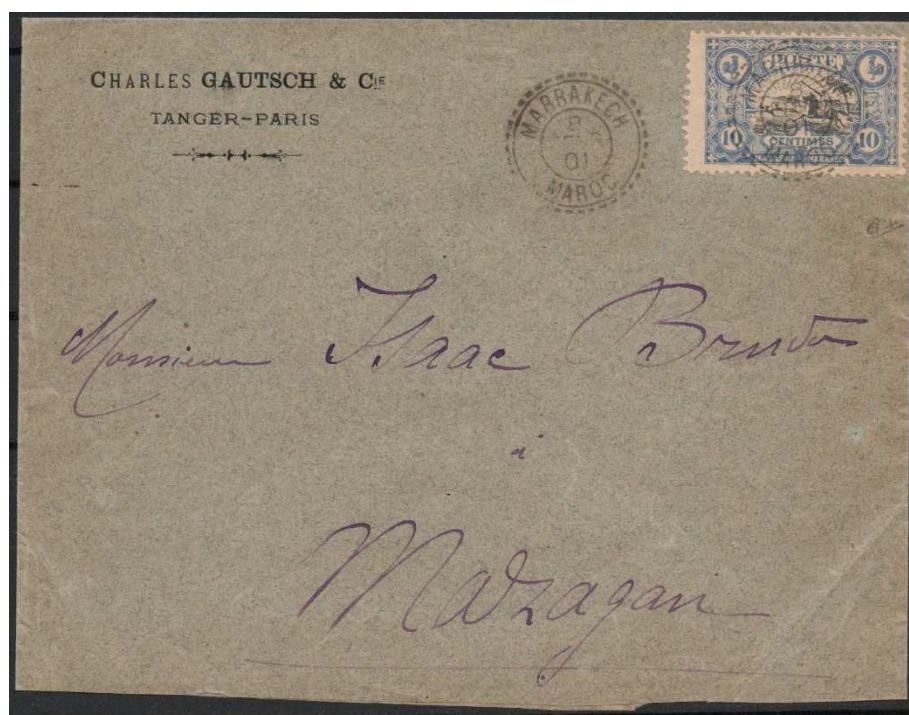 CHARLES GAUTSCH & CIE
TANGER-PARIS
MARRAKECH
8
01
MAROC
POSTE
10 CENTIMES 10
Monsieur Isaac Brudo
à
Mazagan